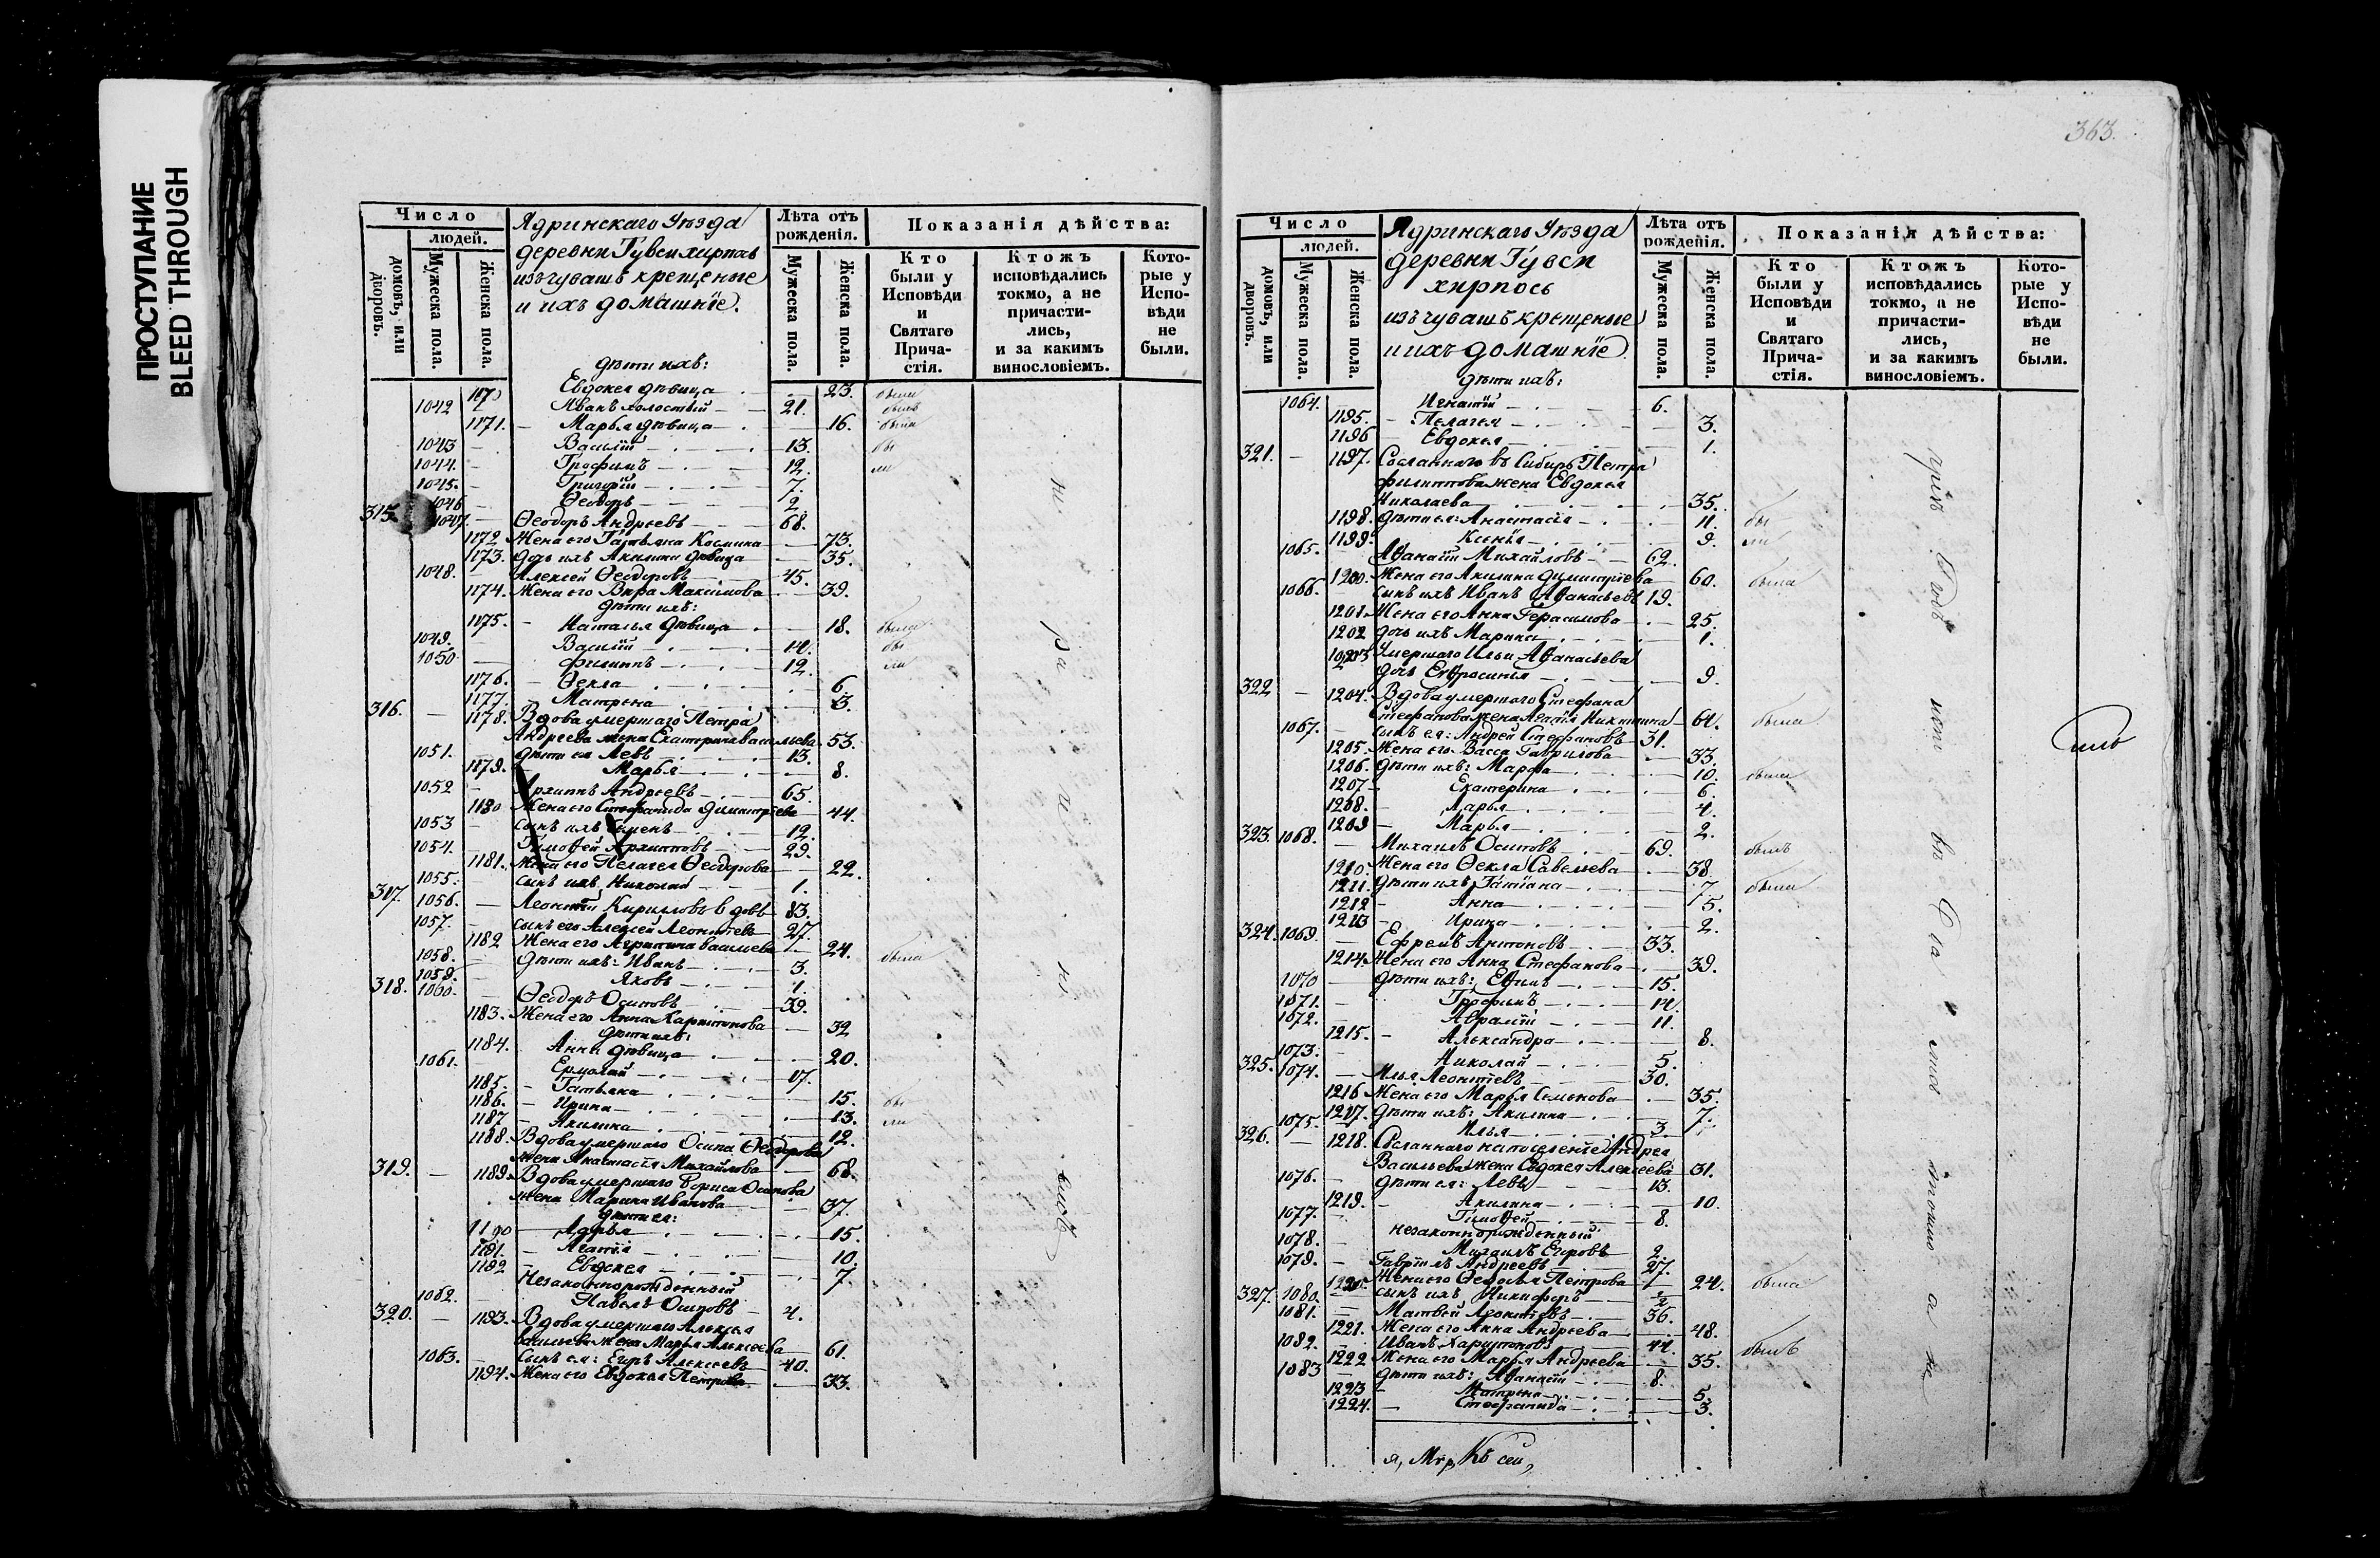 ПРОСТУПАНИЕ
BLEED THROUGH
Число
людей.
домовъ, или дворовъ.
Мужеска пола.
Женска пола.
Ядринскаго Уѣзда
деревни Тувси хирпось
изъ чувашъ крещеные
и ихъ домашніе.
Лѣта отъ рожденія.
Мужеска пола.
Женска пола.
Показанія дѣйства:
Кто были у Исповѣди и Святаго Прича-стія.
Ктожъ исповѣдались токмо, а не причасти-лись, и за какимъ винословіемъ.
Кото-рые у Испо-вѣди не были.
дѣти ихъ:
1170 Евдокея дѣвица 23. была
1042 Иванъ холостый 21. былъ
1171. Марья дѣвица 16. была
1043 Василій 13. бы
1044. Трофимъ 12. ли
1045. Григорій 7.
1046 Ѳеодоръ 2.
315. 1047. Ѳеодоръ Андреевъ 68.
1172 Жена его Татьяна Космина 73.
1173. дочь ихъ Акилина дѣвица 35.
1048. Алексей Ѳеодоровъ 45.
1174. Жена его Вѣра Максимова 39.
дѣти ихъ:
1175. Наталья дѣвица 18. была
1049. Василій 14. бы
1050 Филиппъ 12. ли
1176. Ѳекла 6.
1177. Матрена 3.
316. 1178. Вдова умершаго Петра
Андреева жена Екатерина Васильева 53.
1051. дѣти ея Левъ 13.
1179. Марья 8.
1052 Архиппъ Андреевъ 65.
1180 Жена его Стефанида Димитріева 44.
1053 сынъ ихъ Семенъ 12.
1054. Тимоѳей Архипповъ 29.
1181. Жена его Пелагея Ѳеодорова 22.
1055. сынъ ихъ Николай 1.
317. 1056. Леонтій Кирилловъ вдовъ 83.
1057. сынъ его Алексей Леонтіевъ 27.
1182 Жена его Агрипина Васильева 24. была
1058. дѣти ихъ: Иванъ 3.
1059. Яковъ 1.
318. 1060. Ѳеодоръ Осиповъ 39.
1183. Жена его Анна Харитонова 32
дѣти ихъ:
1184. Анна дѣвица 20.
1061. Ермолай 17.
1185. Татьяна 15. бы
1186. Ирина 13. ли
1187 Акилина 12.
1188. Вдова умершаго Осипа Ѳеодорова
жена Анастасія Михайлова 68.
319. 1189. Вдова умершаго Бориса Осипова
жена Марина Иванова 37.
дѣти ея:
1190 Дарья 15.
1191. Агатія 10.
1192 Евдокея 7.
Незаконнорожденный
1062. Павелъ Осиповъ 4.
320. 1193. Вдова умершаго Алексея
Васильева жена Марья Алексеева 61.
1063. Сынъ ея: Егоръ Алексеевъ 40.
1194. Жена его Евдокея Петрова 33.
363.
Число
людей.
домовъ, или дворовъ.
Мужеска пола.
Женска пола.
Ядринскаго Уѣзда
деревни Тувси
хирпось
изъ чувашъ крещеные
и ихъ домашніе.
Лѣта отъ рожденія.
Мужеска пола.
Женска пола.
Показанія дѣйства:
Кто были у Исповѣди и Святаго Прича-стія.
Ктожъ исповѣдались токмо, а не причасти-лись, и за какимъ винословіемъ.
Кото-рые у Испо-вѣди не были.
дѣти ихъ:
1064. Игнатій 6.
1195. Пелагея 3.
1196 Евдокея 1.
321. 1197. Сосланнаго въ Сибирь Петра
Филиппова жена Евдокея
Николаева 35.
1198. дѣти ея: Анастасія 11. бы
1199. Ксенія 9. ли
1065. Аѳанасій Михайловъ 62.
1200. Жена его Акилина Димитріева 60. была
1066. сынъ ихъ Иванъ Аѳанасьевъ 19.
1201. Жена его Анна Герасимова 25.
1202 дочь ихъ Марина 1.
1203 Умершаго Ильи Аѳанасьева
дочь Евфросинья 9.
322 1204. Вдова умершаго Стефана
Стефанова жена Агаѳія Никитина 64. была
1067. сынъ ея: Андрей Стефановъ 31.
1205. Жена его Васса Гаврилова 33.
1206. дѣти ихъ: Марфа 10. была
1207 Екатерина 6.
1208. Дарья 4.
1209 Марья 2.
323. 1068. Михаилъ Осиповъ 69. былъ
1210. Жена его Ѳекла Савельева 38.
1211. дѣти ихъ: Татіана 7. была
1212 Анна 5.
1213 Ирина 2.
324. 1069. Ефремъ Антоновъ 33.
1214. Жена его Анна Стефанова 39.
1070 дѣти ихъ: Ефимъ 15.
1071. Трофимъ 14.
1072. Авраамій 11.
1215. Александра 8.
1073. Николай 5.
325. 1074. Илья Леонтіевъ 30.
1216 Жена его Марья Семенова 35.
1217. дѣти ихъ: Акилина 7.
1075. Илья 3.
326. 1218. Сосланнаго на поселеніе Андрея
Васильева жена Евдокея Алексеева 31.
1076. дѣти ея: Левъ 13.
1219. Акилина 10.
1077. Тимоѳей 8.
незаконнорожденный
1078. Михаилъ Егоровъ 2.
1079. Гавріилъ Андреевъ 27.
1220. Жена его Ѳедосья Петрова 24. была
327. 1080. сынъ ихъ Никифоръ 1/2
1081. Матвей Леонтіевъ 56.
1221. Жена его Анна Андреева 48.
1082. Иванъ Харитоновъ 44. былъ
1222 Жена его Марья Андреева 35.
1083 дѣти ихъ: Аѳанасій 8.
1223 Матрена 5.
1224. Стефанида 3.